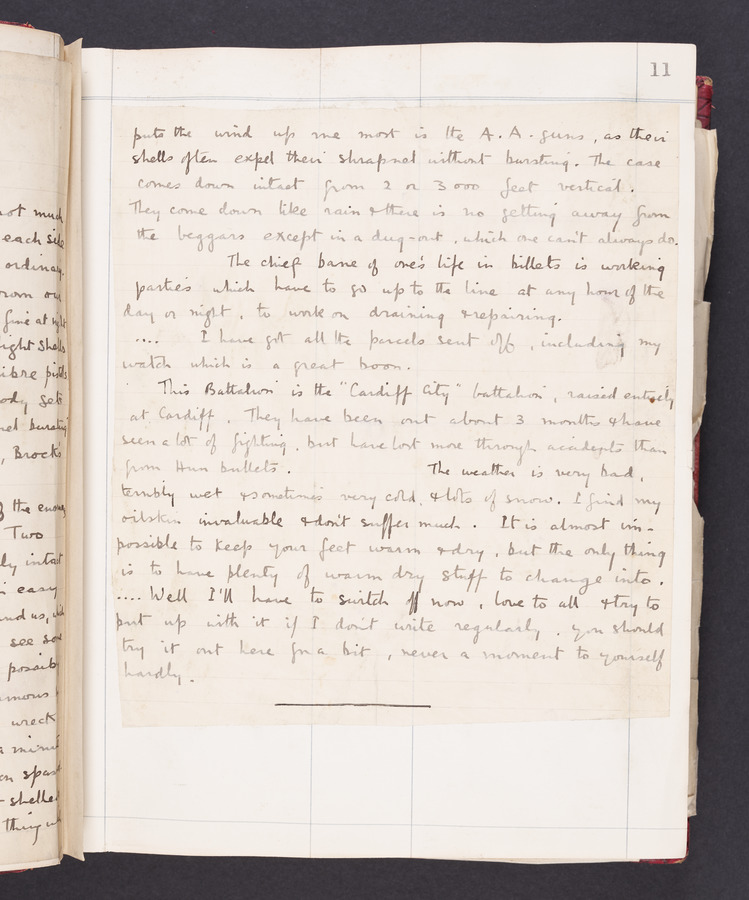 11
puts the wind up me most is the A.A-guns, as their
shells often expel their shrapnel without bursting. The case
comes down intact from 2 or 3000 feet vertical.
They come down like rain & there is no getting away from
the beggars except in a dug-out, which one can't always do.
The chief bane of one's life in billets is working
parties which have to go up to the line at any hour of the
day or night, to work on draining & repairing.
.... I have got all the parcels sent off, including my
watch which is a great boon.
This Battalion is the "Cardiff City" battalion, raised entirely
at Cardiff. They have been out about 3 months & have
seen a lot of fighting, but have lost more through accidents than
from Hun bullets. The weather is very bad,
terribly wet & sometimes very cold, & lots of snow. I find my
oilskin invaluable & don't suffer much. It is almost im-
possible to keep your feet warm & dry, but the only thing
is to have plenty of warm dry stuff to change into.
.... Well I'll have to switch off now, love to all & try to
put up with it if I don't write regularly. You should
try it out here for a bit, never a moment to yourself
hardly.
not much
each side
ordinary
from our
fine at night
light shells
calibre pistols
ody gets
bursting
, Brock's
of the enemy
Two
ly intact
easy
and us, which
see
possib
wreck
a minu
shelled
thing